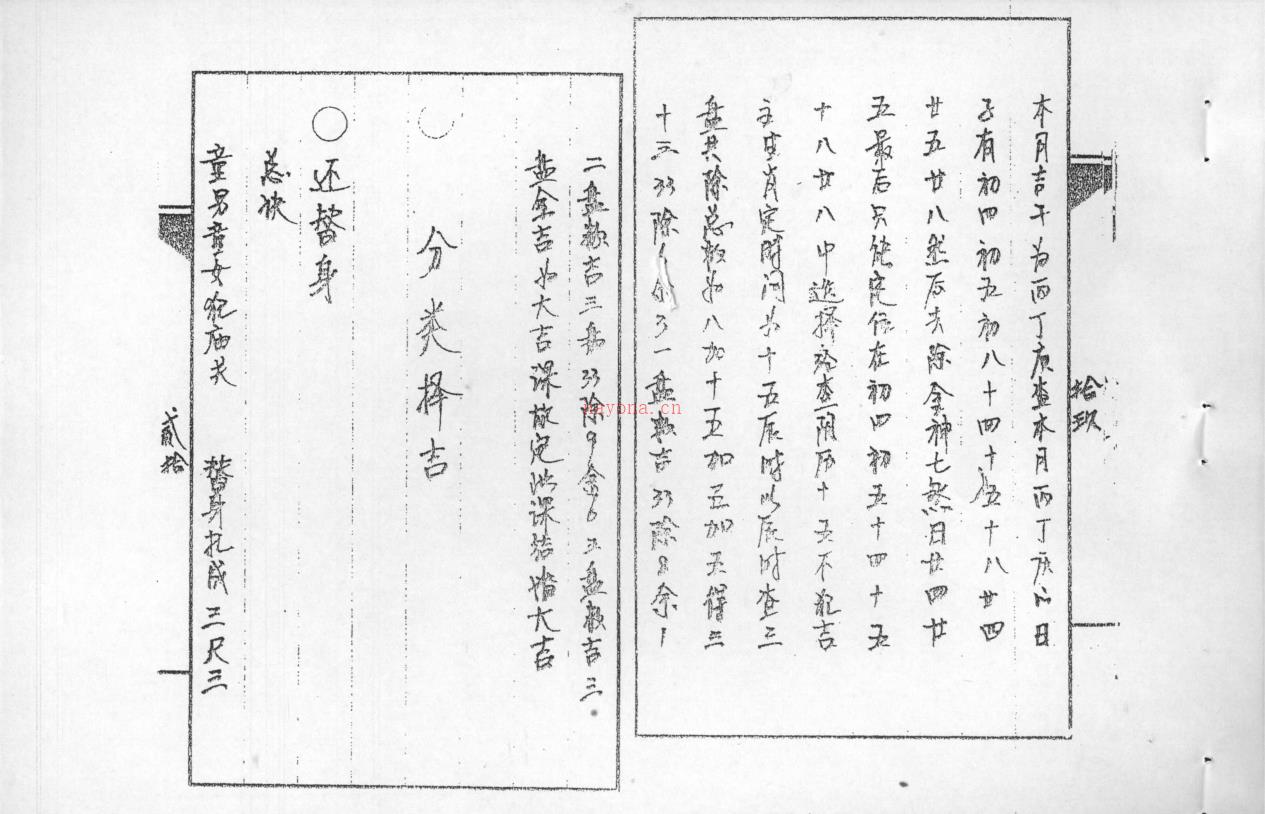 拾玖
本月吉干为丙丁庚查本月丙丁庚的日
子有初四初五初八十四十五十八廿四
廿五廿八然后去除金神七煞日廿四廿
五最后只能定位在初四初五十四十五
十八廿八中选择检查阴历十五不犯吉
主生肖定时间共十五辰时以辰时查三
盘共除总数为八加十五加五加五得三
十三33除 余 一盘数吉33除8余1
二盘数吉三 33除9余6三盘数吉三
盘全吉为大吉课故定此课结婚大吉
分类择吉
还替身
总诀
童男童女犯庙关 替身扎成三尺三
贰拾
nayona.cn